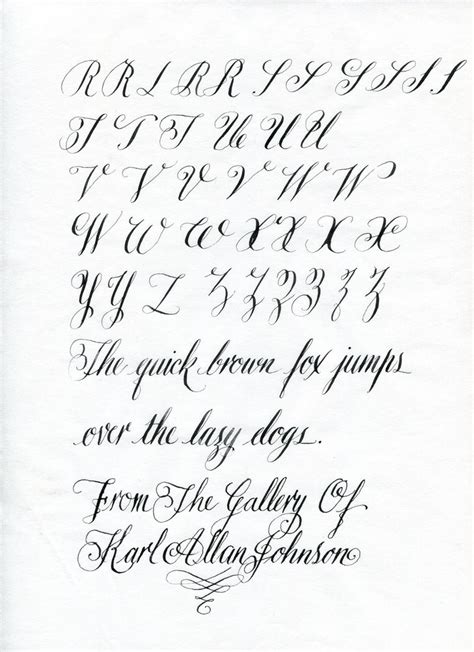 R R R R R S S S S S S
T T T U U U
V V V V W W
W W W X X X X
Y Y Z Z Z Z Z Z Z
The quick brown fox jumps
over the lazy dogs.
From The Gallery Of
Karl Allan Johnson